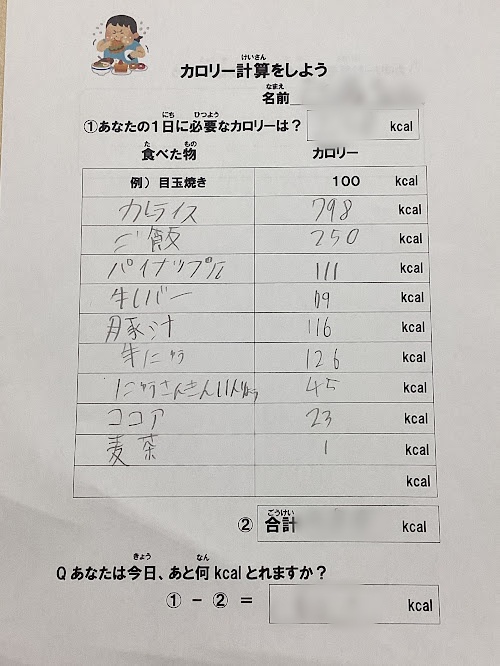 カロリー計算をしよう
名前
①あなたの1日に必要なカロリーは? kcal
食べた物 カロリー
例)目玉焼き 100 kcal
カレライス 798 kcal
ご飯 250 kcal
パイナップル 111 kcal
牛レバー 119 kcal
豚汁 116 kcal
牛にゅう 126 kcal
にゅうさんきんいんりょう 45 kcal
ココア 23 kcal
麦茶 1 kcal
kcal
② 合計 kcal
Qあなたは今日、あと何kcalとれますか?
①-②= kcal